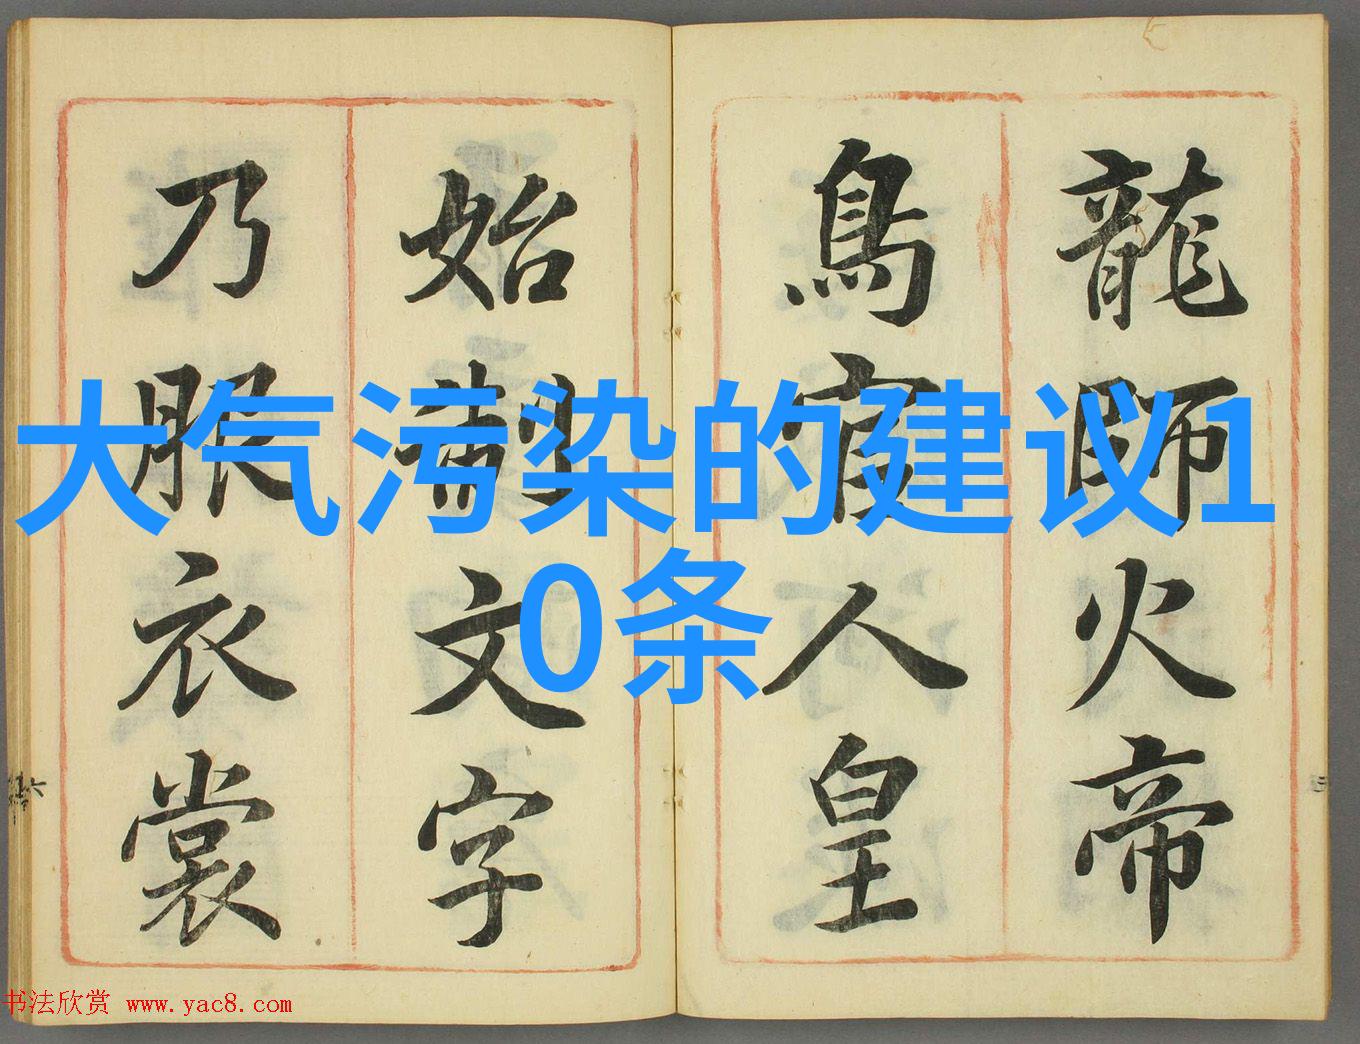 龍師火帝
鳥官人皇
始制文字
乃服衣裳
大气污染的建议1
0条
书法欣赏 www.yac8.com